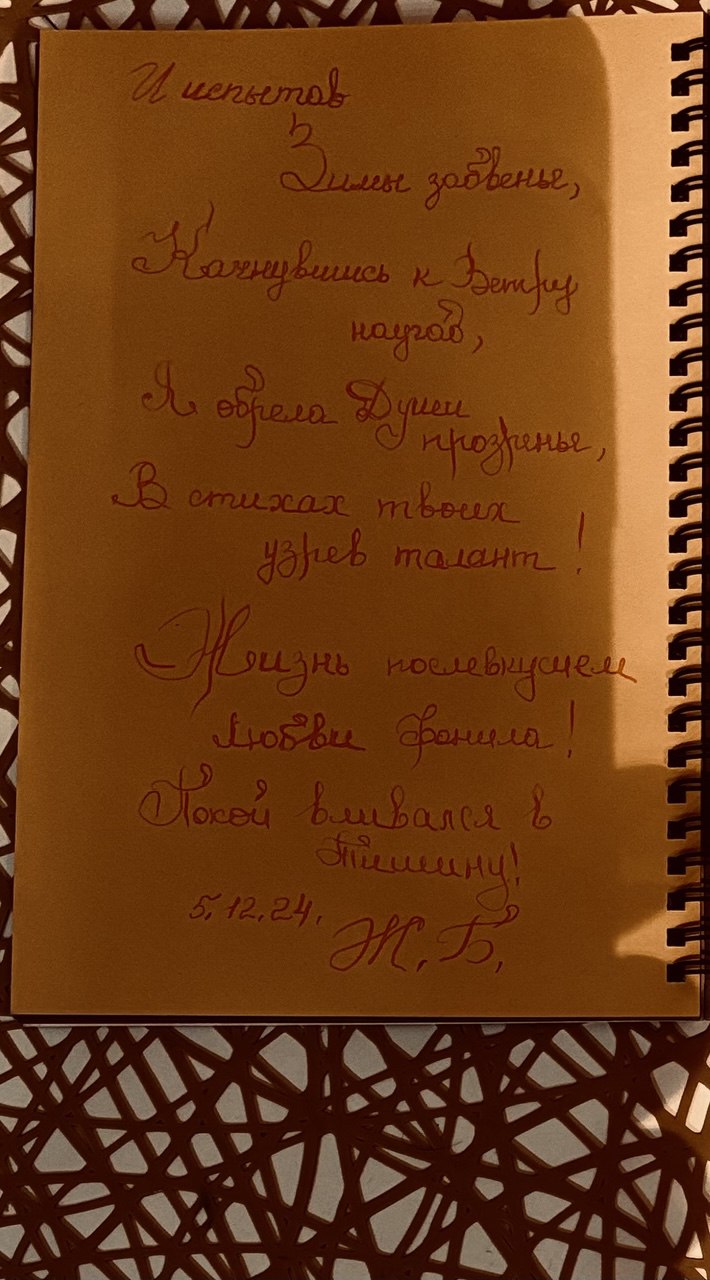 И испытав
Зимы забвенье,
Качнувшись к Ветру
наугад,
Я обрела Души
прозренье,
В стихах твоих
узрев талант!
Жизнь послевкусием
Любви фонила!
Покой вливался в
Тишину!
5.12.24.
Ж.Б.